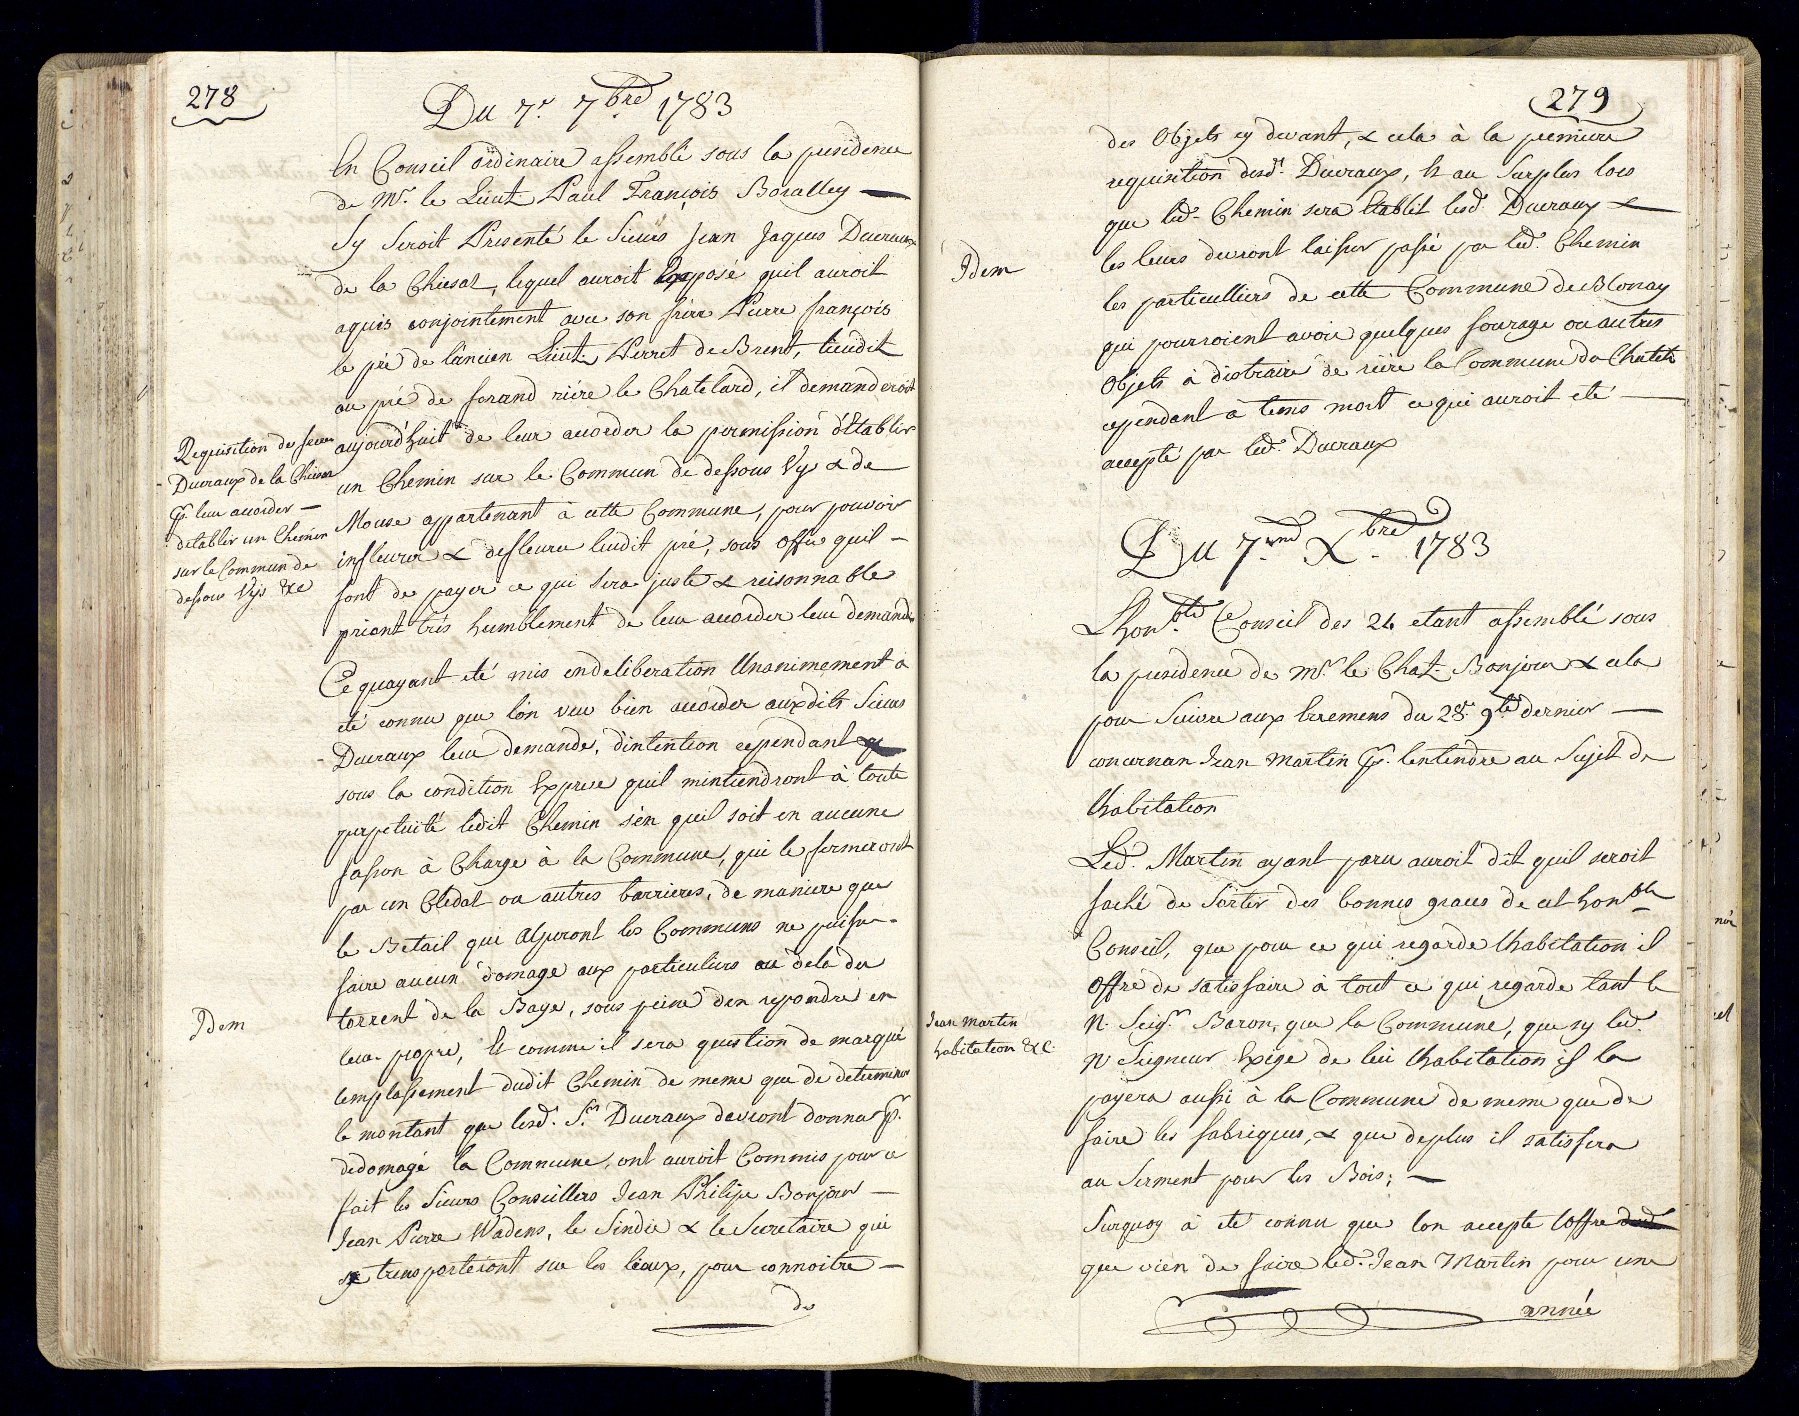 278
Du 7.e 7.bre 1783
En Conseil ordinaire assemblé sous la presidence
de Mr. le Lieut. Paul François Boralley —
Sy Seroit Presenté le Sieurs Jean Jaques Ducraux
de la Chiesaz, lequel auroit Exposé quil auroit
aquis conjointement avec son frère Pierre françois
le pré de l'ancien Lieut. Perret de Brent, lieudit
au pré de forand riére le Chatelard, il demanderoit
aujourd'huit de leur accorder la permission d'Etablir
un Chemin sur le Commun de dessous Vys & de
Mouse appartenant à cette Commune, pour pouvoir
infleurer & desfleurer leudit pré, sous offre quil –
font de payer ce qui sera juste & reisonnable
priant trés humblement de leur accorder leur demande
Requisition des frères
Ducraux de la Chiesaz
pr. leur accorder —
detablir un Chemin
sur le Commun de
dessous Vys &c
Ce quayant eté mis en deliberation Unanimement a
eté connu que l'on veu bien accorder auxdits Sieurs
Ducraux leur demande, d'intention cependant
sous la condition Expresse quil mintiendront à toute
perpetuité ledit Chemin s'en quil soit en aucune
fasson à Charge à la Commune, qui le fermeront
par un Cledal ou autres barrieres, de maniere que
le Betail qui Alperont les Communs ne puisse –
faire aucun domage aux particuliers au dela du
torrent de la Baye, sous peine d'en repondre en
leur propre, Et comme il sera question de marqué
lemplassement dudit Chemin de meme que de determiner
le montant que lesd. Srs. Ducraux devront donner pr.
dedomagé la Commune, ont auroit Commis pour ce
fait les Sieurs Conseillers Jean Philipe Bonjour —
Jean Pierre Wadens, le Sindic & le Secretaire qui
se transporteront sur les lieux, pour connoitre —
de
Idem
279
des Objets cy devant, & cela à la premiere
requisition desdt. Ducraux, Et au Surplus lors
que led. Chemin sera Etablit lesd. Ducraux &
les leurs devront laisser passé par led. Chemin
les particulliers de cette Commune de Blonay
qui pourroient avoir quelques fourage ou autres
Objets à distraire de riére la Commune du Chatel.
cependant à tems mort ce qui auroit eté —
accepté par led. Ducraux
Idem
Du 7.me X.bre 1783
Lhon.ble Conseil des 24 etant assemblé sous
la presidence de Mr. le Chat. Bonjour & cela
pour Suivre aux Erremens du 28e. 9.bre dernier —
concernan Jean Martin pr. lentendre au Sujet de
lhabitation
Led. Martin ayant paru auroit dit quil seroit
faché de Sortir des bonnes graces de cet hon.ble
Conseil, que pour ce qui regarde lhabitation il
Offre de satisfaire à tout ce qui regarde tant le
N. Seigr. Baron, que la Commune, que sy led.
N Seigneur Exige de lui lhabitation il la
payera aussi à la Commune de meme que de
faire les fabriques, & que deplus il satisfera
au Serment pour les Bois; —
Jean Martin
habitation &c
Surquoy à eté connu que lon accepte loffre
que vien de faire led. Jean Martin pour une
année